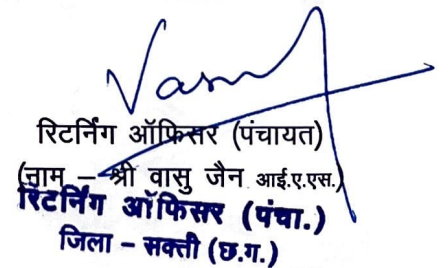 Vasu
रिटर्निंग ऑफिसर (पंचायत)
(नाम – श्री वासु जैन आई.ए.एस.)
रिटर्निंग ऑफिसर (पंचा.)
जिला – सक्ती (छ.ग.)